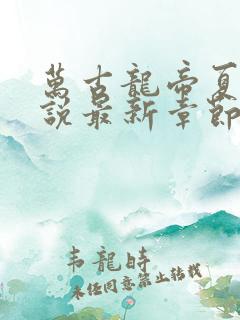 萬古龍帝夏
說最新章節
韦龍時
未经同意禁止转载